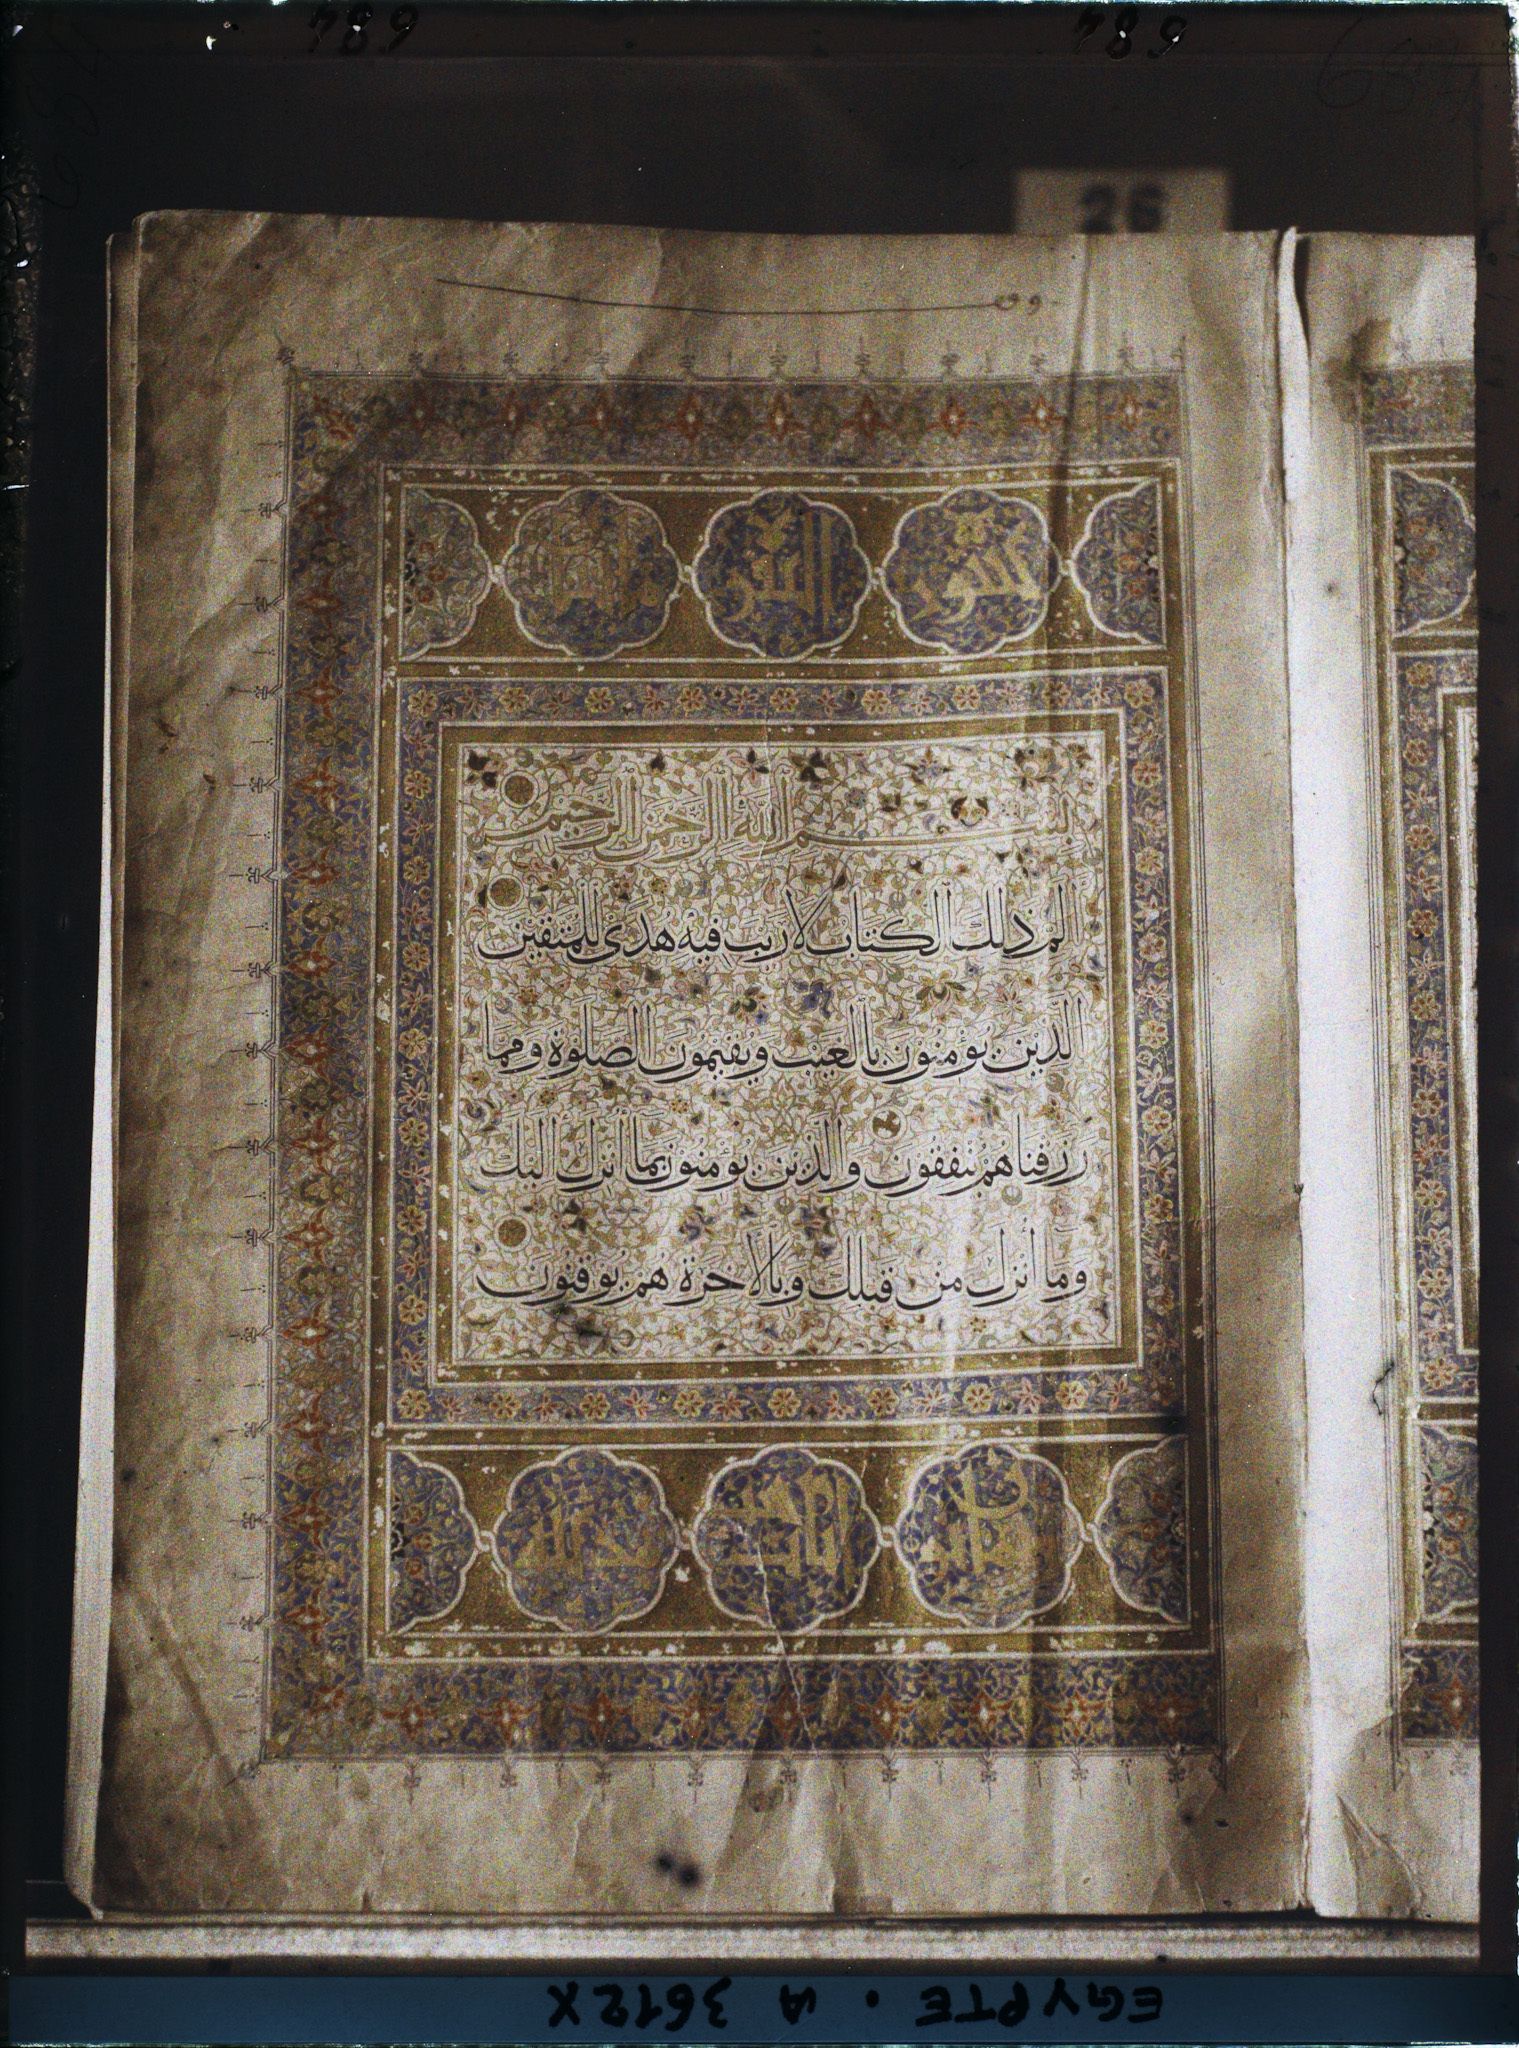 684
684
684
26
وقف
سورة
البقرة
بِسْمِ اللَّهِ الرَّحْمَنِ الرَّحِيمِ
الم ذَلِكَ الْكِتَابُ لَا رَيْبَ فِيهِ هُدًى لِلْمُتَّقِينَ
الَّذِينَ يُؤْمِنُونَ بِالْغَيْبِ وَيُقِيمُونَ الصَّلَوةَ وَمِمَّا
رَزَقْنَاهُمْ يُنْفِقُونَ وَالَّذِينَ يُؤْمِنُونَ بِمَا أُنْزِلَ إِلَيْكَ
وَمَا أُنْزِلَ مِنْ قَبْلِكَ وَبِالْآخِرَةِ هُمْ يُوقِنُونَ
EGYPTE . A 3612X